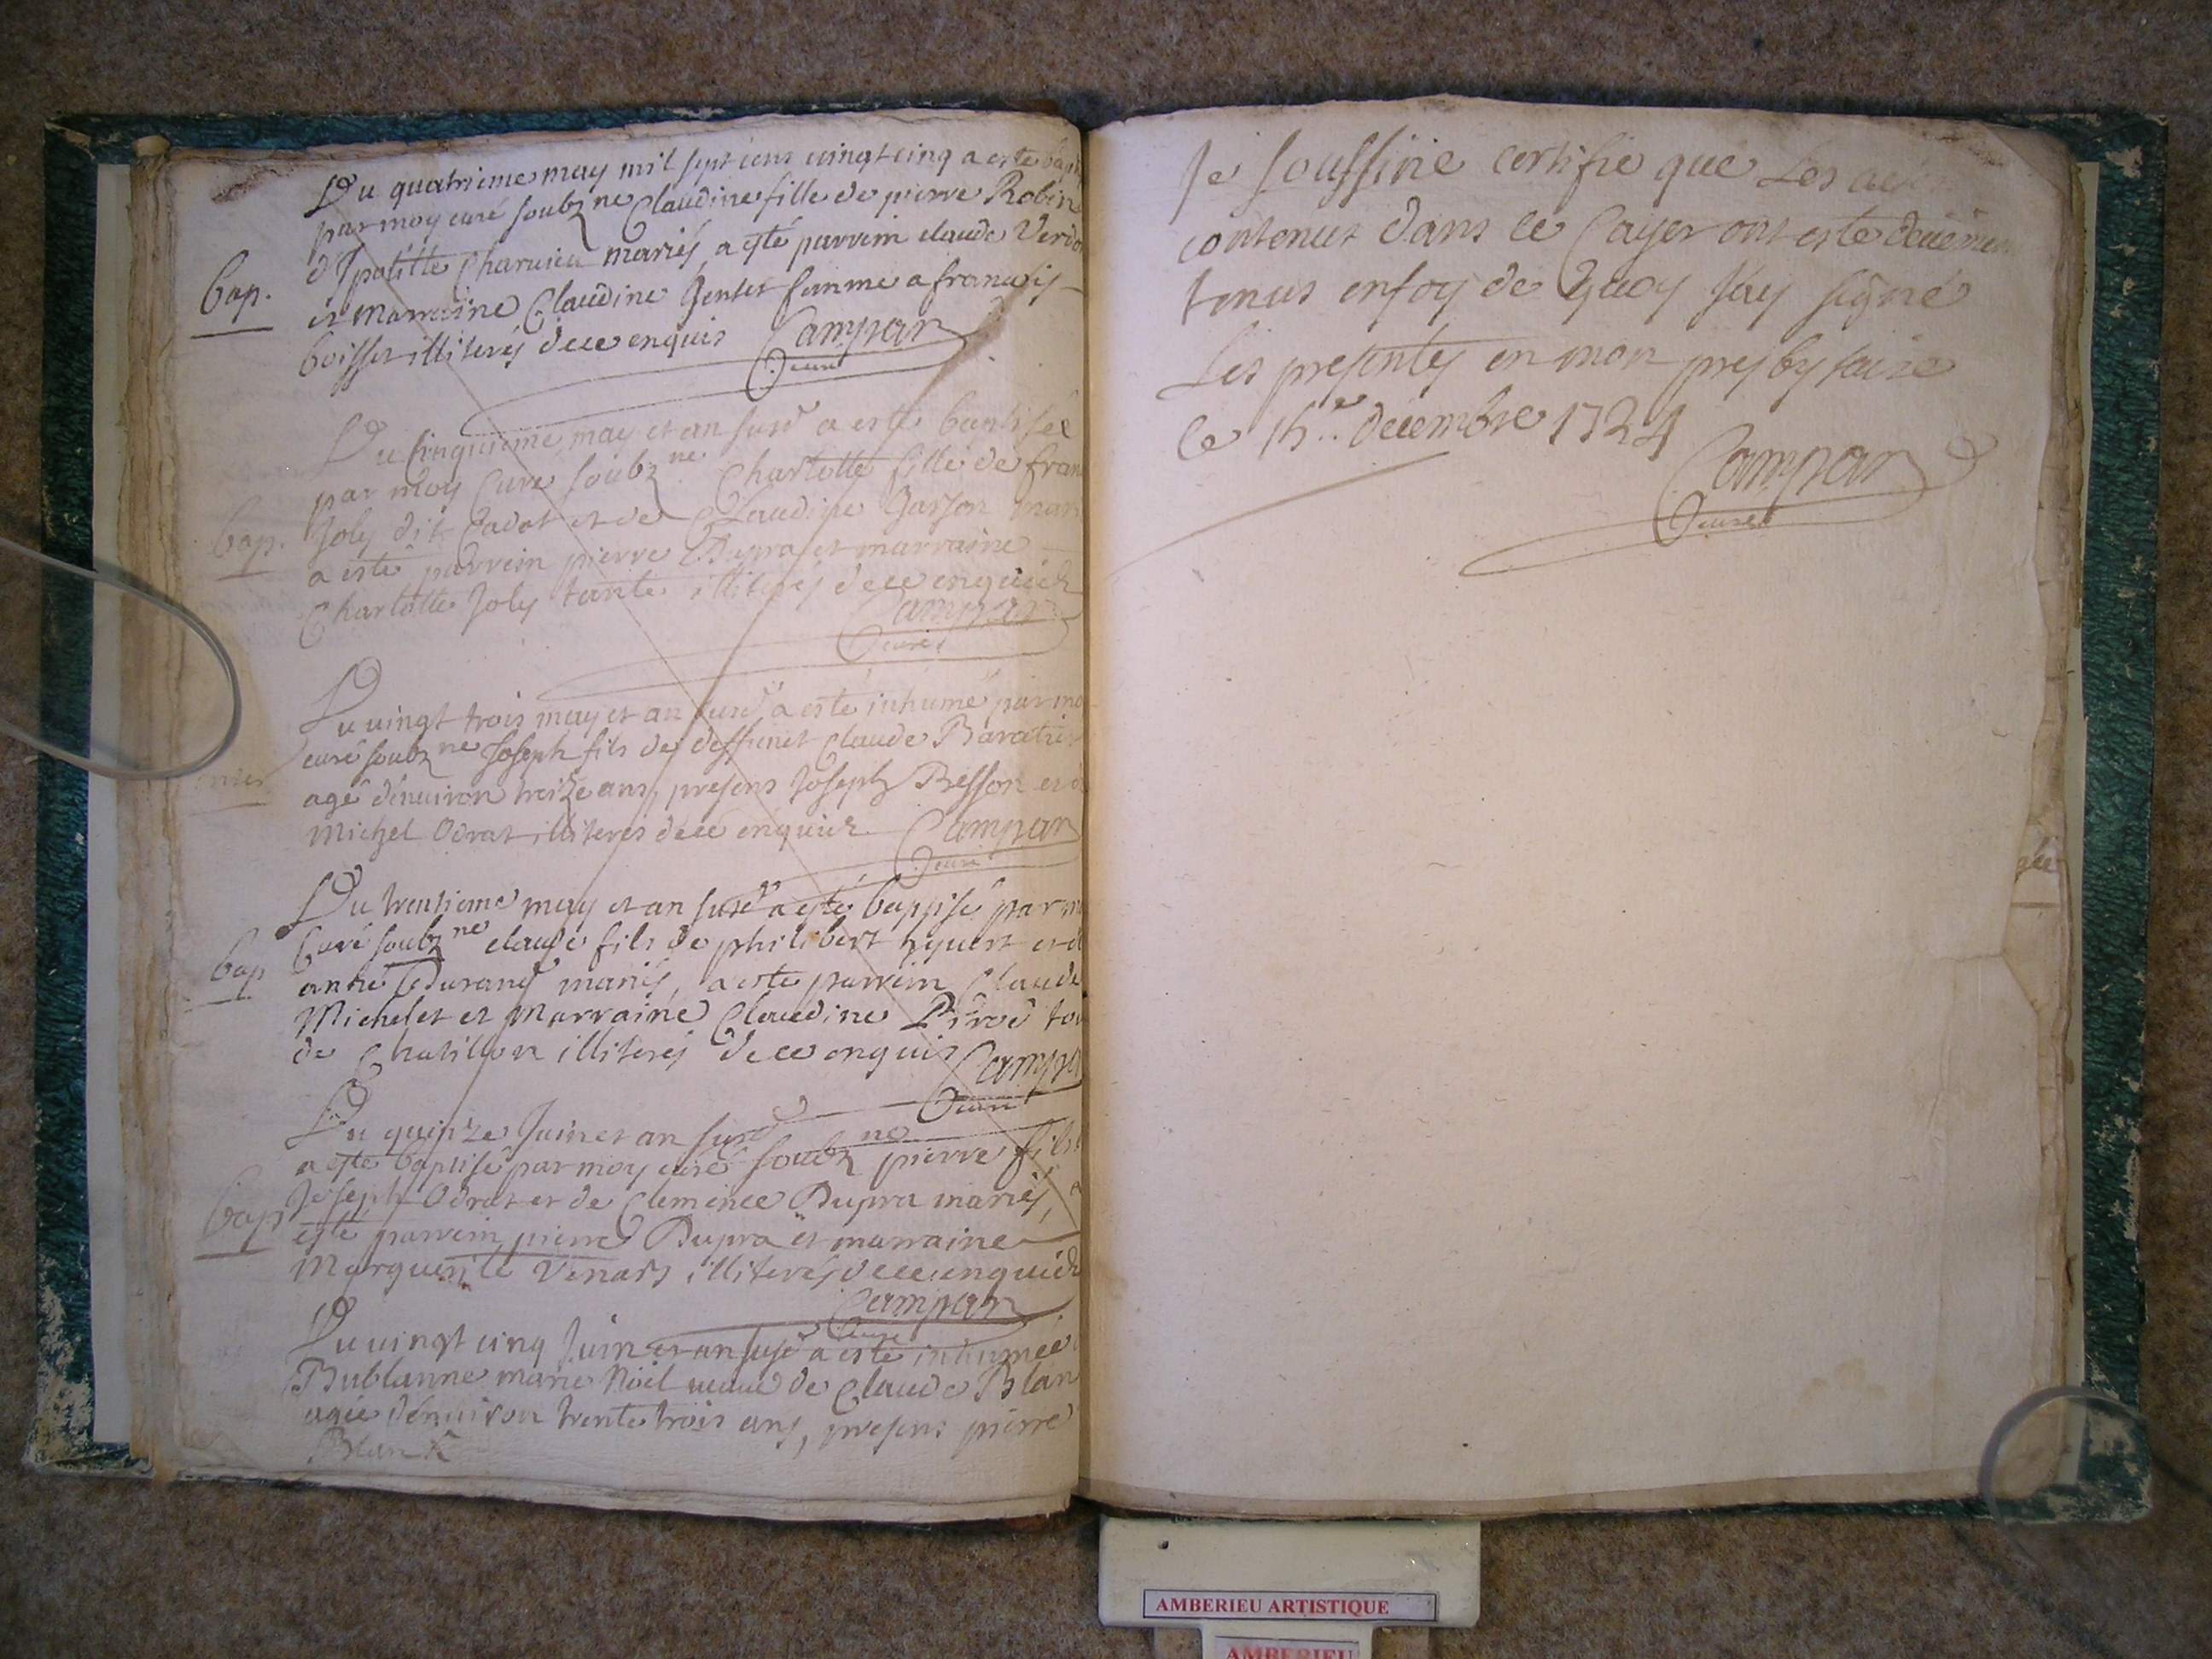 Du quatrieme may mil sept cens vingt cinq a este
par moy curé soubz ne Claudine fille de pierre Robin
d'Ipolitte Charvieu mariés, a esté parrein claude
Bap.
et marraine Claudine Gentet femme a francois
boisset illiterés de ce enquis Campan
curé
Du Cinquieme may et an susd a este baptisée
par moy Curé soubz ne Charlotte fille de fran
Bap. Joly dit Cadot et de Claudine Garson mar
a esté parrein pierre Dupra et marraine
Charlotte Joly tante illiterés de ce enquich
Campan
curé
Du vingt trois may et an susd a esté inhumé par mo
curé soubz ne Joseph fils de deffunct Claude Baratier
agé d'environ treize ans, presens Joseph Besson et
Michel Odrat illiteres de ce enquich Campan
curé
Du trentieme may et an susd a esté baptisé par m
Curé soubz ne claude fils de philibert et d
bap
mariés, a este parrein Claude
Michelet et Marraine Claudine
de Chatillon illiterés de ce enquis Campa
curé
Du quinze Juin et an susd
a este baptisé par moy curé soubz ne pierre fils
bap Joseph Odrat et de Clemence Dupra mariés, a
esté parrein pierre Dupra et marraine
Marguerite Venars illiterés de ce enquich
Campan
curé
Du vingt cinq Juin et an susd a este inhumée
Bublanne marie Noël veuve de Claude Blan
agée d'environ trente trois ans, presens pierre
Blanc
Je soussiné certifie que Les
contenus dans ce Cayer ont este
tenus en foy de quoy Jay signé
Les presentes en mon presbytaire
Ce 15e decembre 1724
Campan
curé
AMBERIEU ARTISTIQUE
AMBERIEU